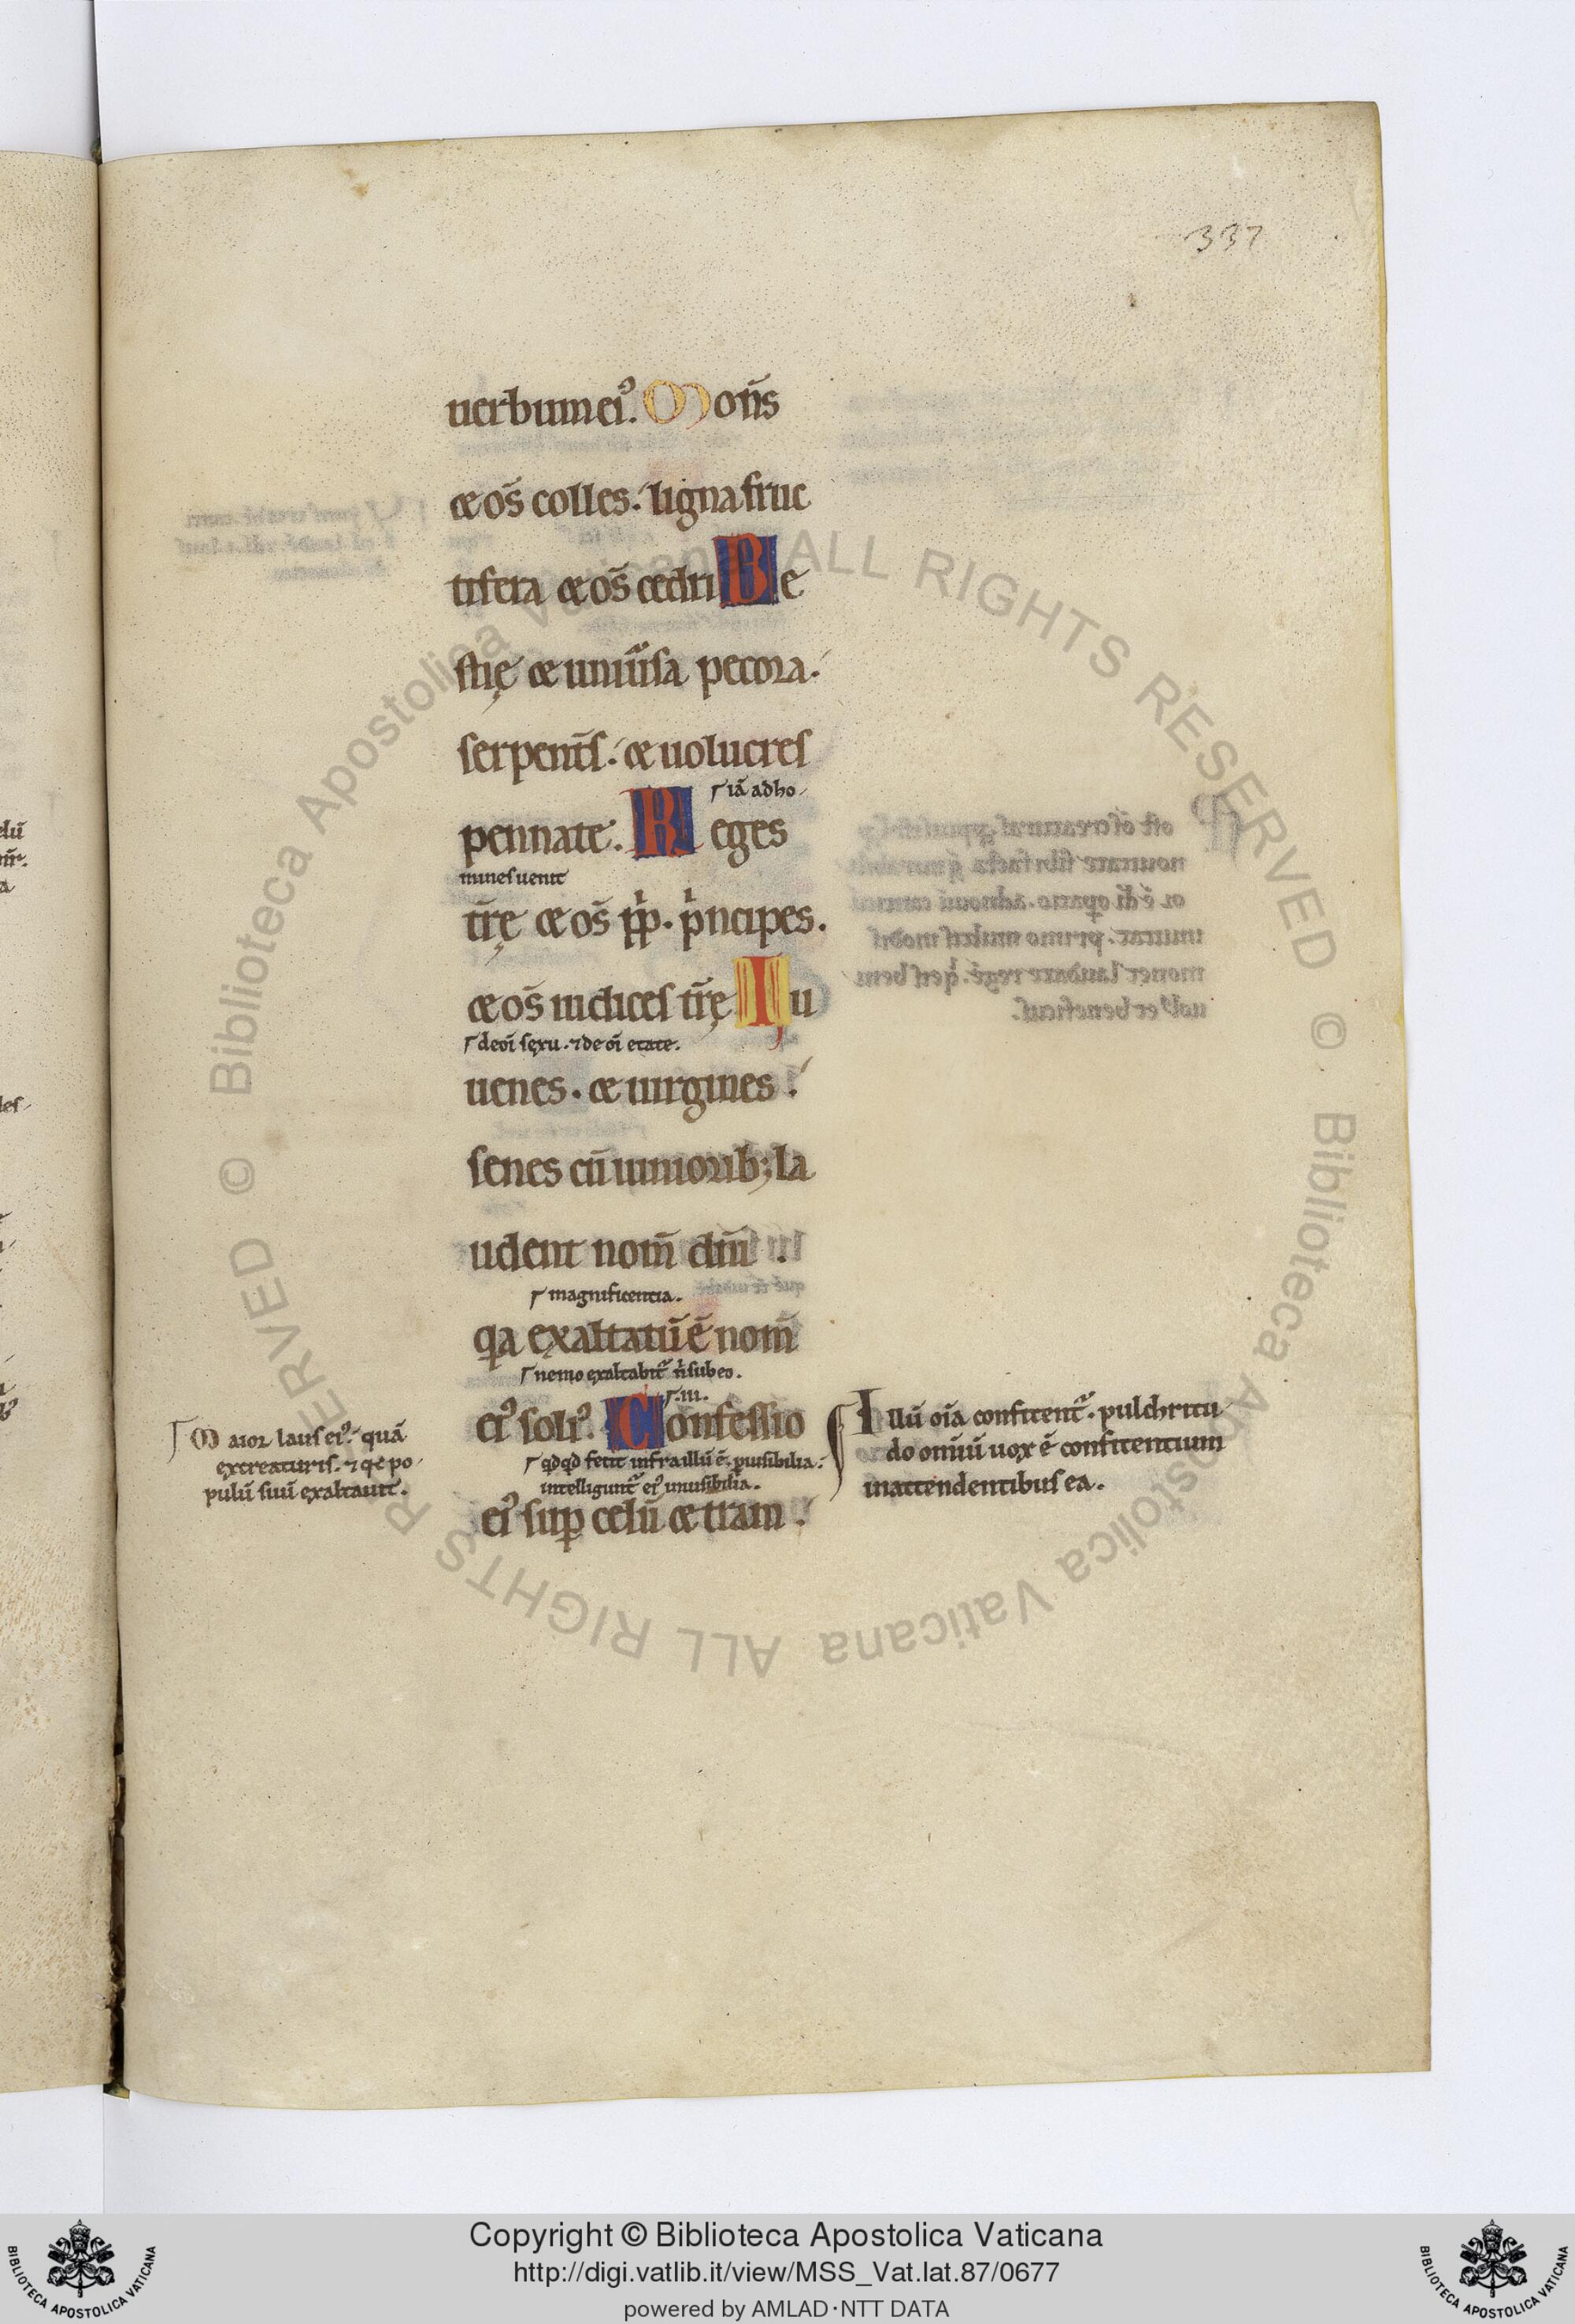 337
uerbum eiꝰ. Mōns
& os̄ colles. lignafruc
tifera & os̄ cedri Be
stię & uniũsa pecora.
serpent̄s. & uolucres
iā ad ho
pennate. Reges
mines uenit
tr̄ę & os̄ pp̄. pncipes.
& os̄ iudices tr̄ę Iu
de oī sęxu. ⁊ de oī etate.
uenes. & uirgines.
senes cū iunioribꝫ la
udent nom̄ dm̄i.
magnificentia.
qa exaltatū ē nom̄
nemo exaltabit᷑ n̄ sub eo.
eiꝰ soliꝰ. Confessio
.iii.
qdqd fecit infra illū ē. puisibilia.
intelligunt᷑ eiꝰ inuisibilia.
eiꝰ suꝑ celū & tram.
Maior laus eiꝰ. quā
ex creaturis. ⁊ qꝛ po
pulū suū exaltauit.
Illū oīa confitent᷑. pulchritu
do om̄iū uox ē confitentium
in attendentibus ea.
© Biblioteca Apostolica Vaticana ALL RIGHTS RESERVED
© Biblioteca Apostolica Vaticana ALL RIGHTS RESERVED
BIBLIOTECA APOSTOLICA VATICANA
Copyright © Biblioteca Apostolica Vaticana
http://digi.vatlib.it/view/MSS_Vat.lat.87/0677
powered by AMLAD·NTT DATA
BIBLIOTECA APOSTOLICA VATICANA